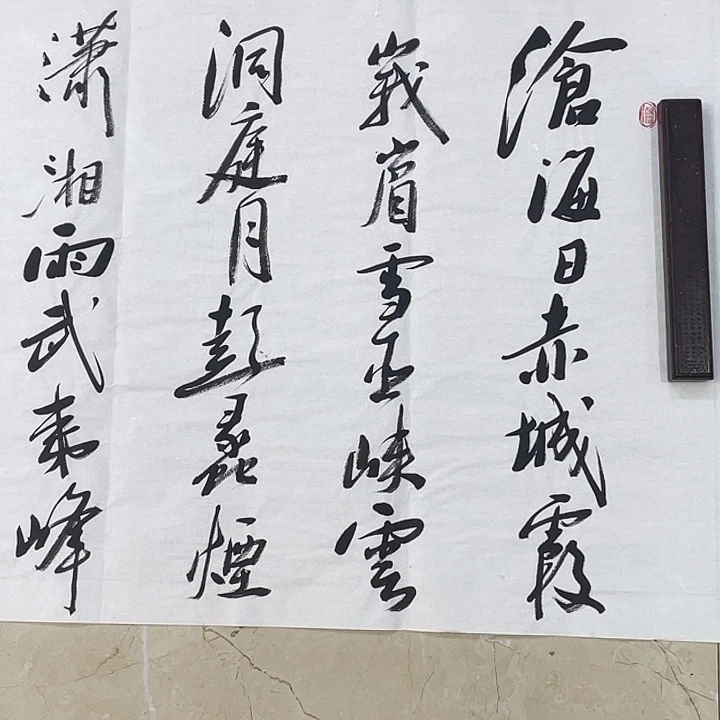 滄海日赤城霞
峩眉雪巫峽雲
洞庭月彭蠡煙
瀟湘雨武夷峰